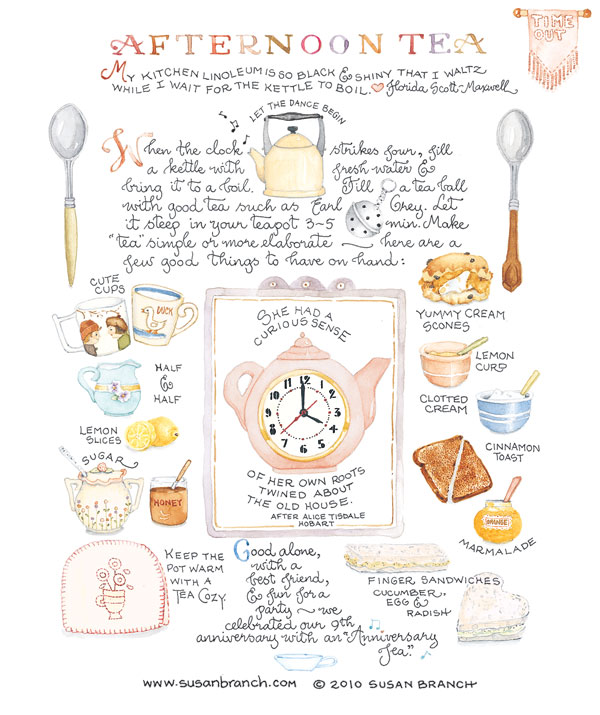 TIME
OUT
AFTERNOON TEA
My KITCHEN LINOLEUM IS SO BLACK & SHINY THAT I WALTZ
WHILE I WAIT FOR THE KETTLE TO BOIL. ♡ Florida Scott-Maxwell
LET THE DANCE BEGIN
When the clock strikes four, fill
a kettle with fresh water &
bring it to a boil. Fill a tea ball
with good tea such as Earl Grey. Let
it steep in your teapot 3~5 min. Make
"tea" simple or more elaborate — here are a
few good things to have on hand:
CUTE
CUPS
DUCK
HALF
&
HALF
LEMON
SLICES
SUGAR
HONEY
SHE HAD A
CURIOUS SENSE
12
1
2
3
4
5
6
7
8
9
10
11
OF HER OWN ROOTS
TWINED ABOUT
THE OLD HOUSE.
AFTER ALICE TISDALE
HOBART
YUMMY CREAM
SCONES
LEMON
CURD
CLOTTED
CREAM
CINNAMON
TOAST
ORANGE
MARMALADE
KEEP THE
POT WARM
WITH A
TEA COZY.
Good alone,
with a
best friend,
& fun for a
party ~ we
celebrated our 9th
anniversary with an "Anniversary
Tea."
FINGER SANDWICHES
CUCUMBER,
EGG &
RADISH
www.susanbranch.com © 2010 SUSAN BRANCH